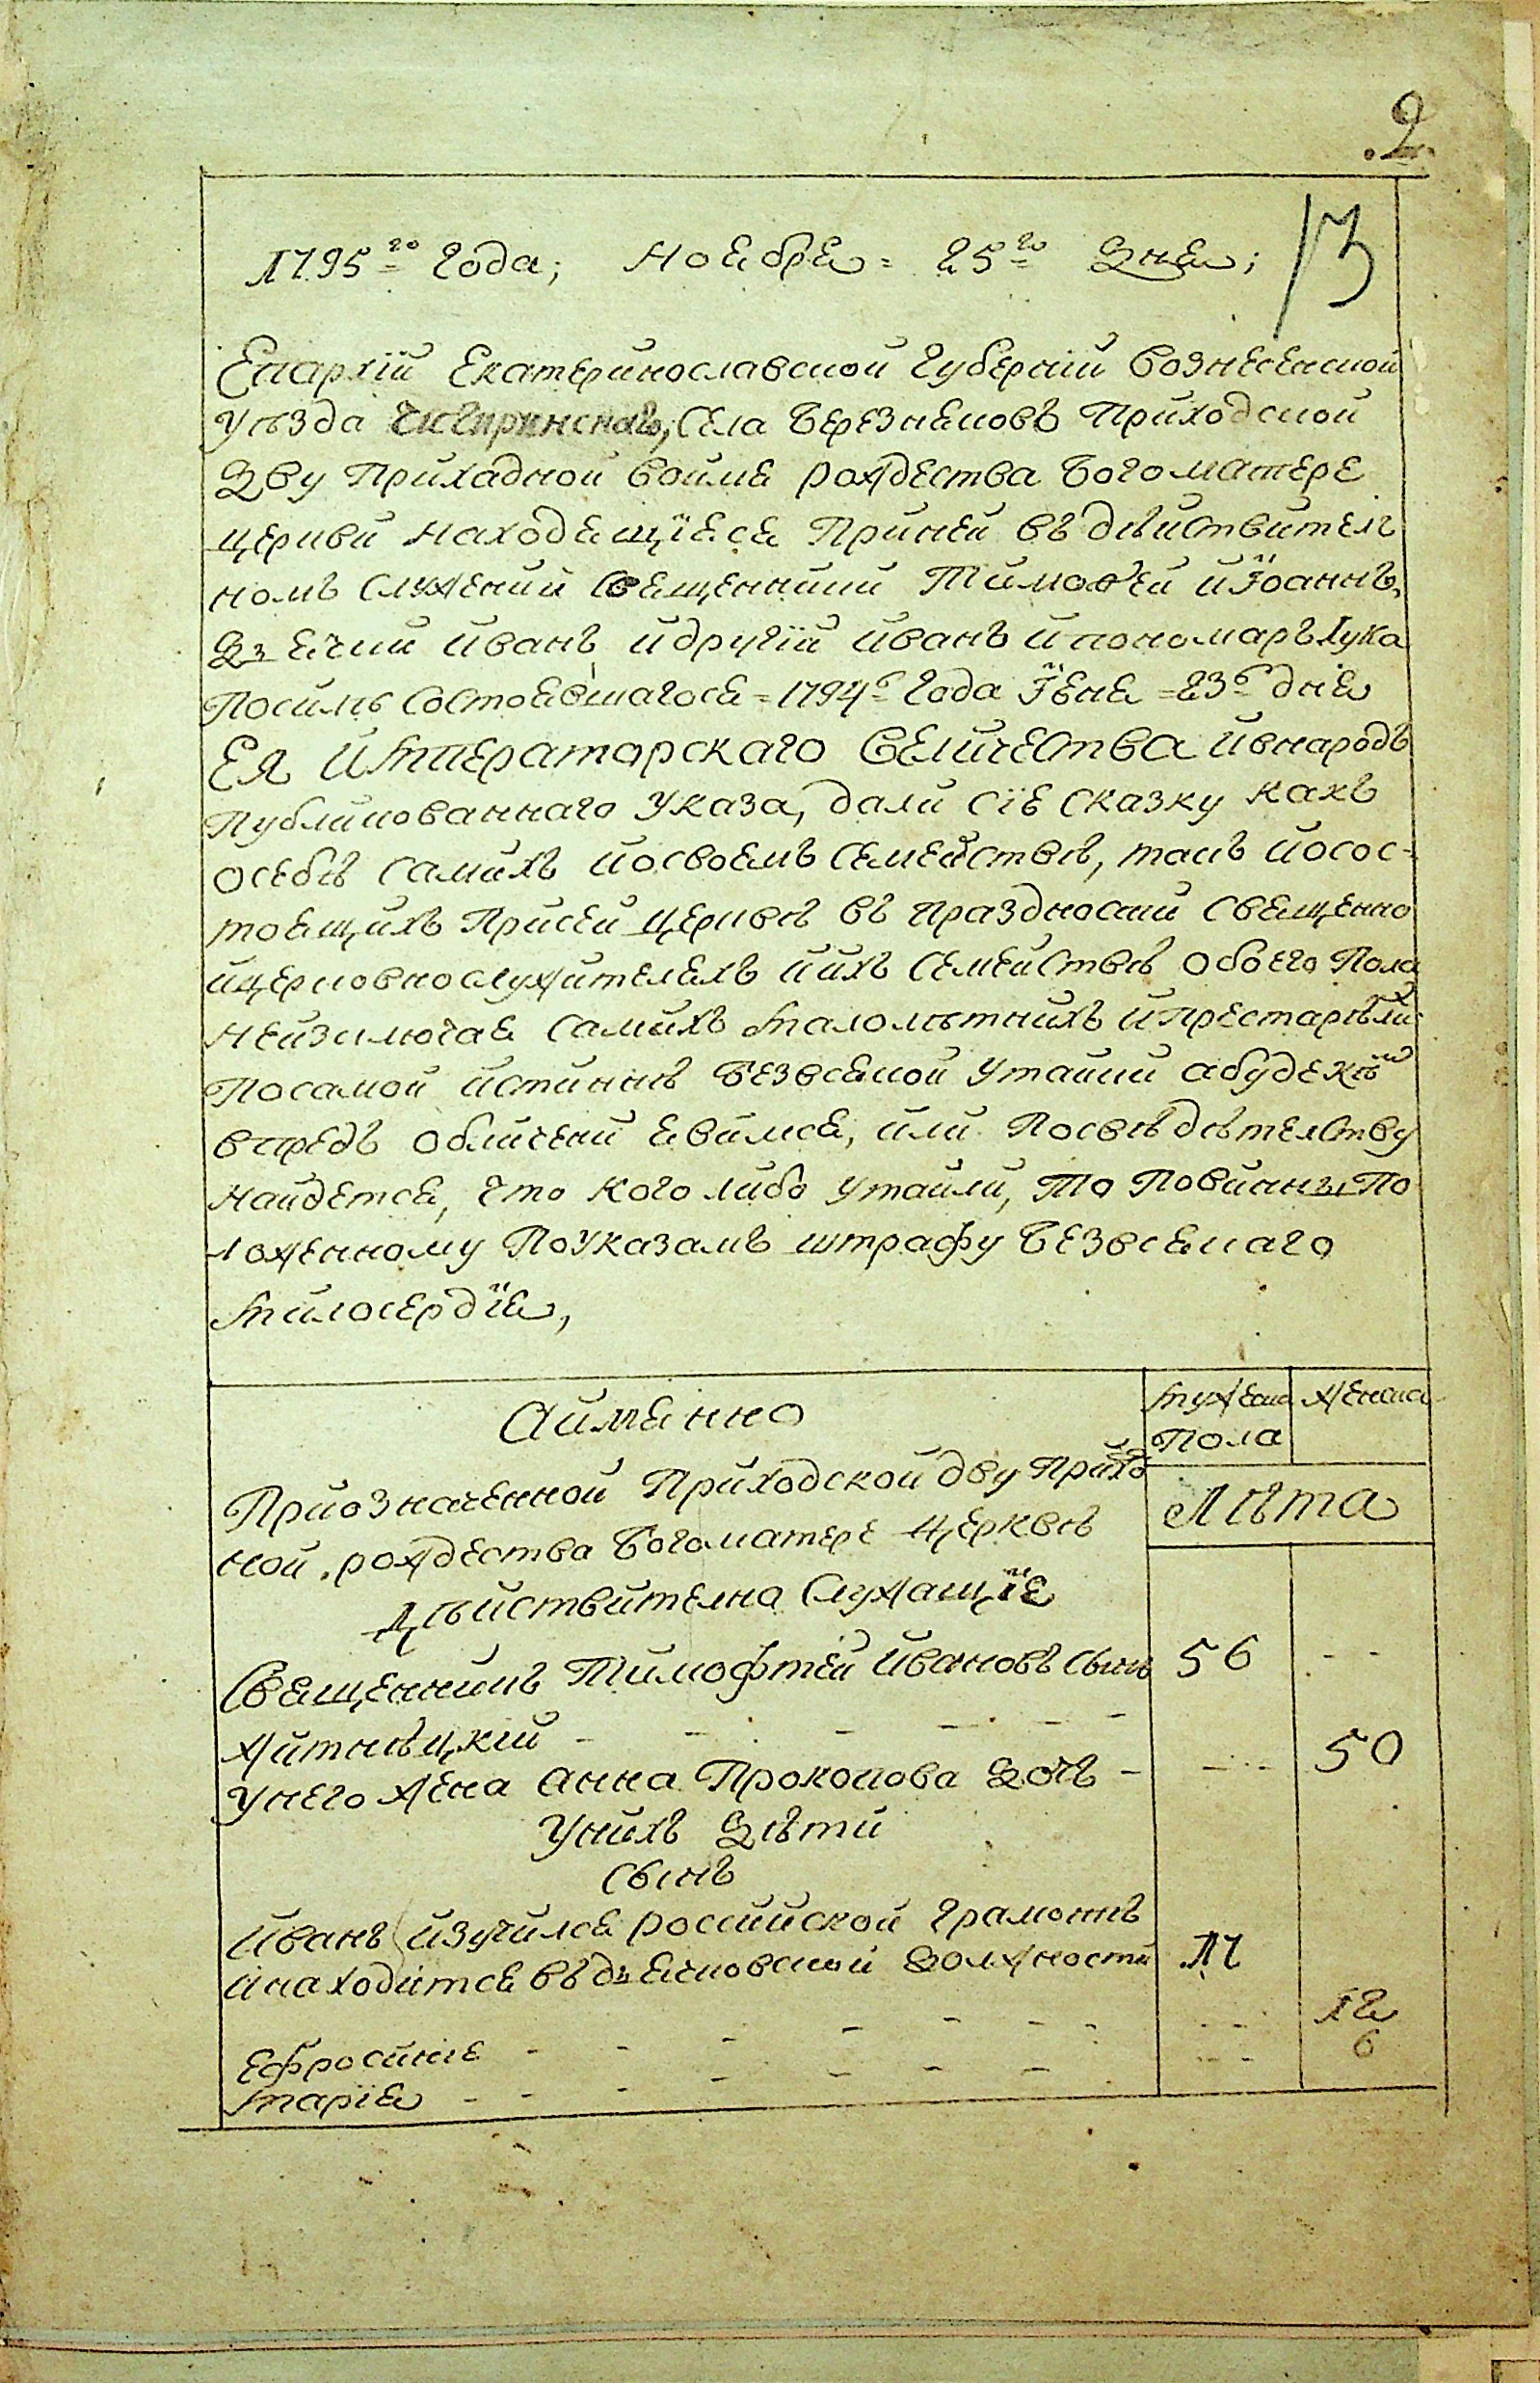 2
13
1795го года; Ноебре = 25го дне;
Епархїи Екатеринославской губернїи Вознесенской
уезда Чигиринскаго, села Березнековъ приходской
дву приходной воиме рождества богоматере
церкви находещїесе приней въ действител
номъ служении свещенники Тимофей и Іоаннъ,
дзечки Иванъ и другїй Иванъ и пономаръ Лука
посилѣ состоевшагосе = 1794г года Їюне = 23г дне
Ея Императорскаго Величества ивнародъ
публикованнаго указа, дали сїе сказку какъ
осебѣ самихъ иосвоемъ семействѣ, такъ иосос-
тоещихъ присей церквѣ въ праздности свещенно
ицерковнослужителехъ иихъ семействѣ обоего пола
неизключае самихъ малолѣтнихъ ипрестарѣлих
посамой истиннѣ безвсекой утайки абуде кѣм
впредъ обличени евимсе, или посвѣдѣтелству
найдетсе, что кого либо утаили, то повинны по
ложенному поуказамъ штрафу безвсекаго
милосердїе,
Аименно
мужеска женска
пола
Приозначенной приходской дву прихо
ной рождества богоматере церквѣ
лѣта
дѣиствителна служащїе
Свещенникъ Тимофтей Ивановъ сынъ 56 - -
Житнѣцкїй - - - - - -
унего жена Анна Прокопова дочъ - - - - 50
унихъ дѣти
сынъ
Иванъ изучилсе российской грамотѣ
инаходитсе въ дзечковской должности 17
Ефросиние - - - - - - - - - 12
Марїе - - - - - - - - - 6